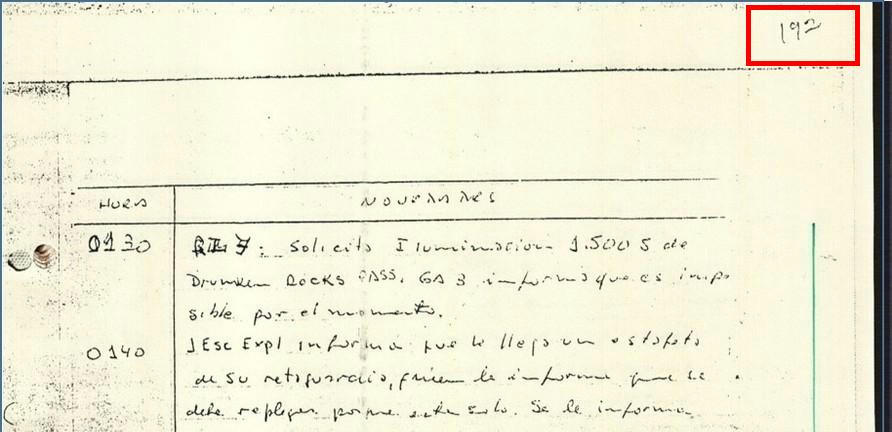 192
HORA NOVEDADES
0130 RI 7: Solicita Iluminacion 1.500 S de
Drunken Rocks PASS. GA 3 informa que es impo
sible por el momento.
0140 J Esc Expl informa que le llega un estafeta
de su retaguardia, quien le informa que se
debe replegar porque esta solo. Se le informa